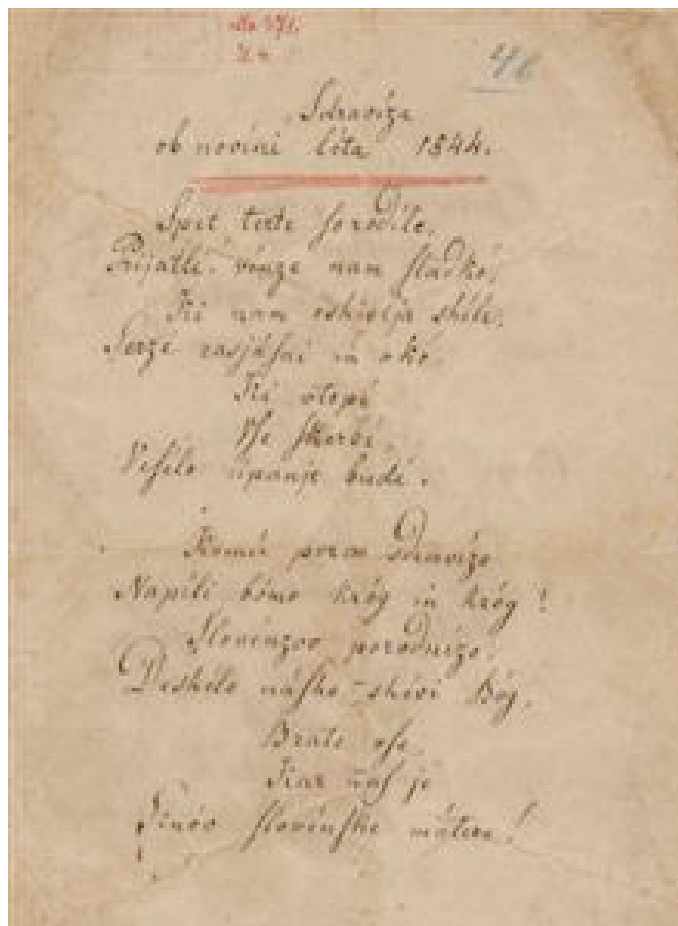 Ms 471.
N. 4
46
Sdraviza
ob novini léta 1844.
Spet terte so rodile,
Prijatli, vinze nam sladkó,
Ki nam oshivlja shile,
Serze rasjásni in okó
Ki vtopi
Vse skerbi,
Veselo upanje budi.
Komú perve sdravizo
Napili bómo króg in króg!
Slovénzov porodnizo,
Deshélo násho shívi Bóg,
Brate vse,
Kar naſ je
Sinóv slovénske mátere!